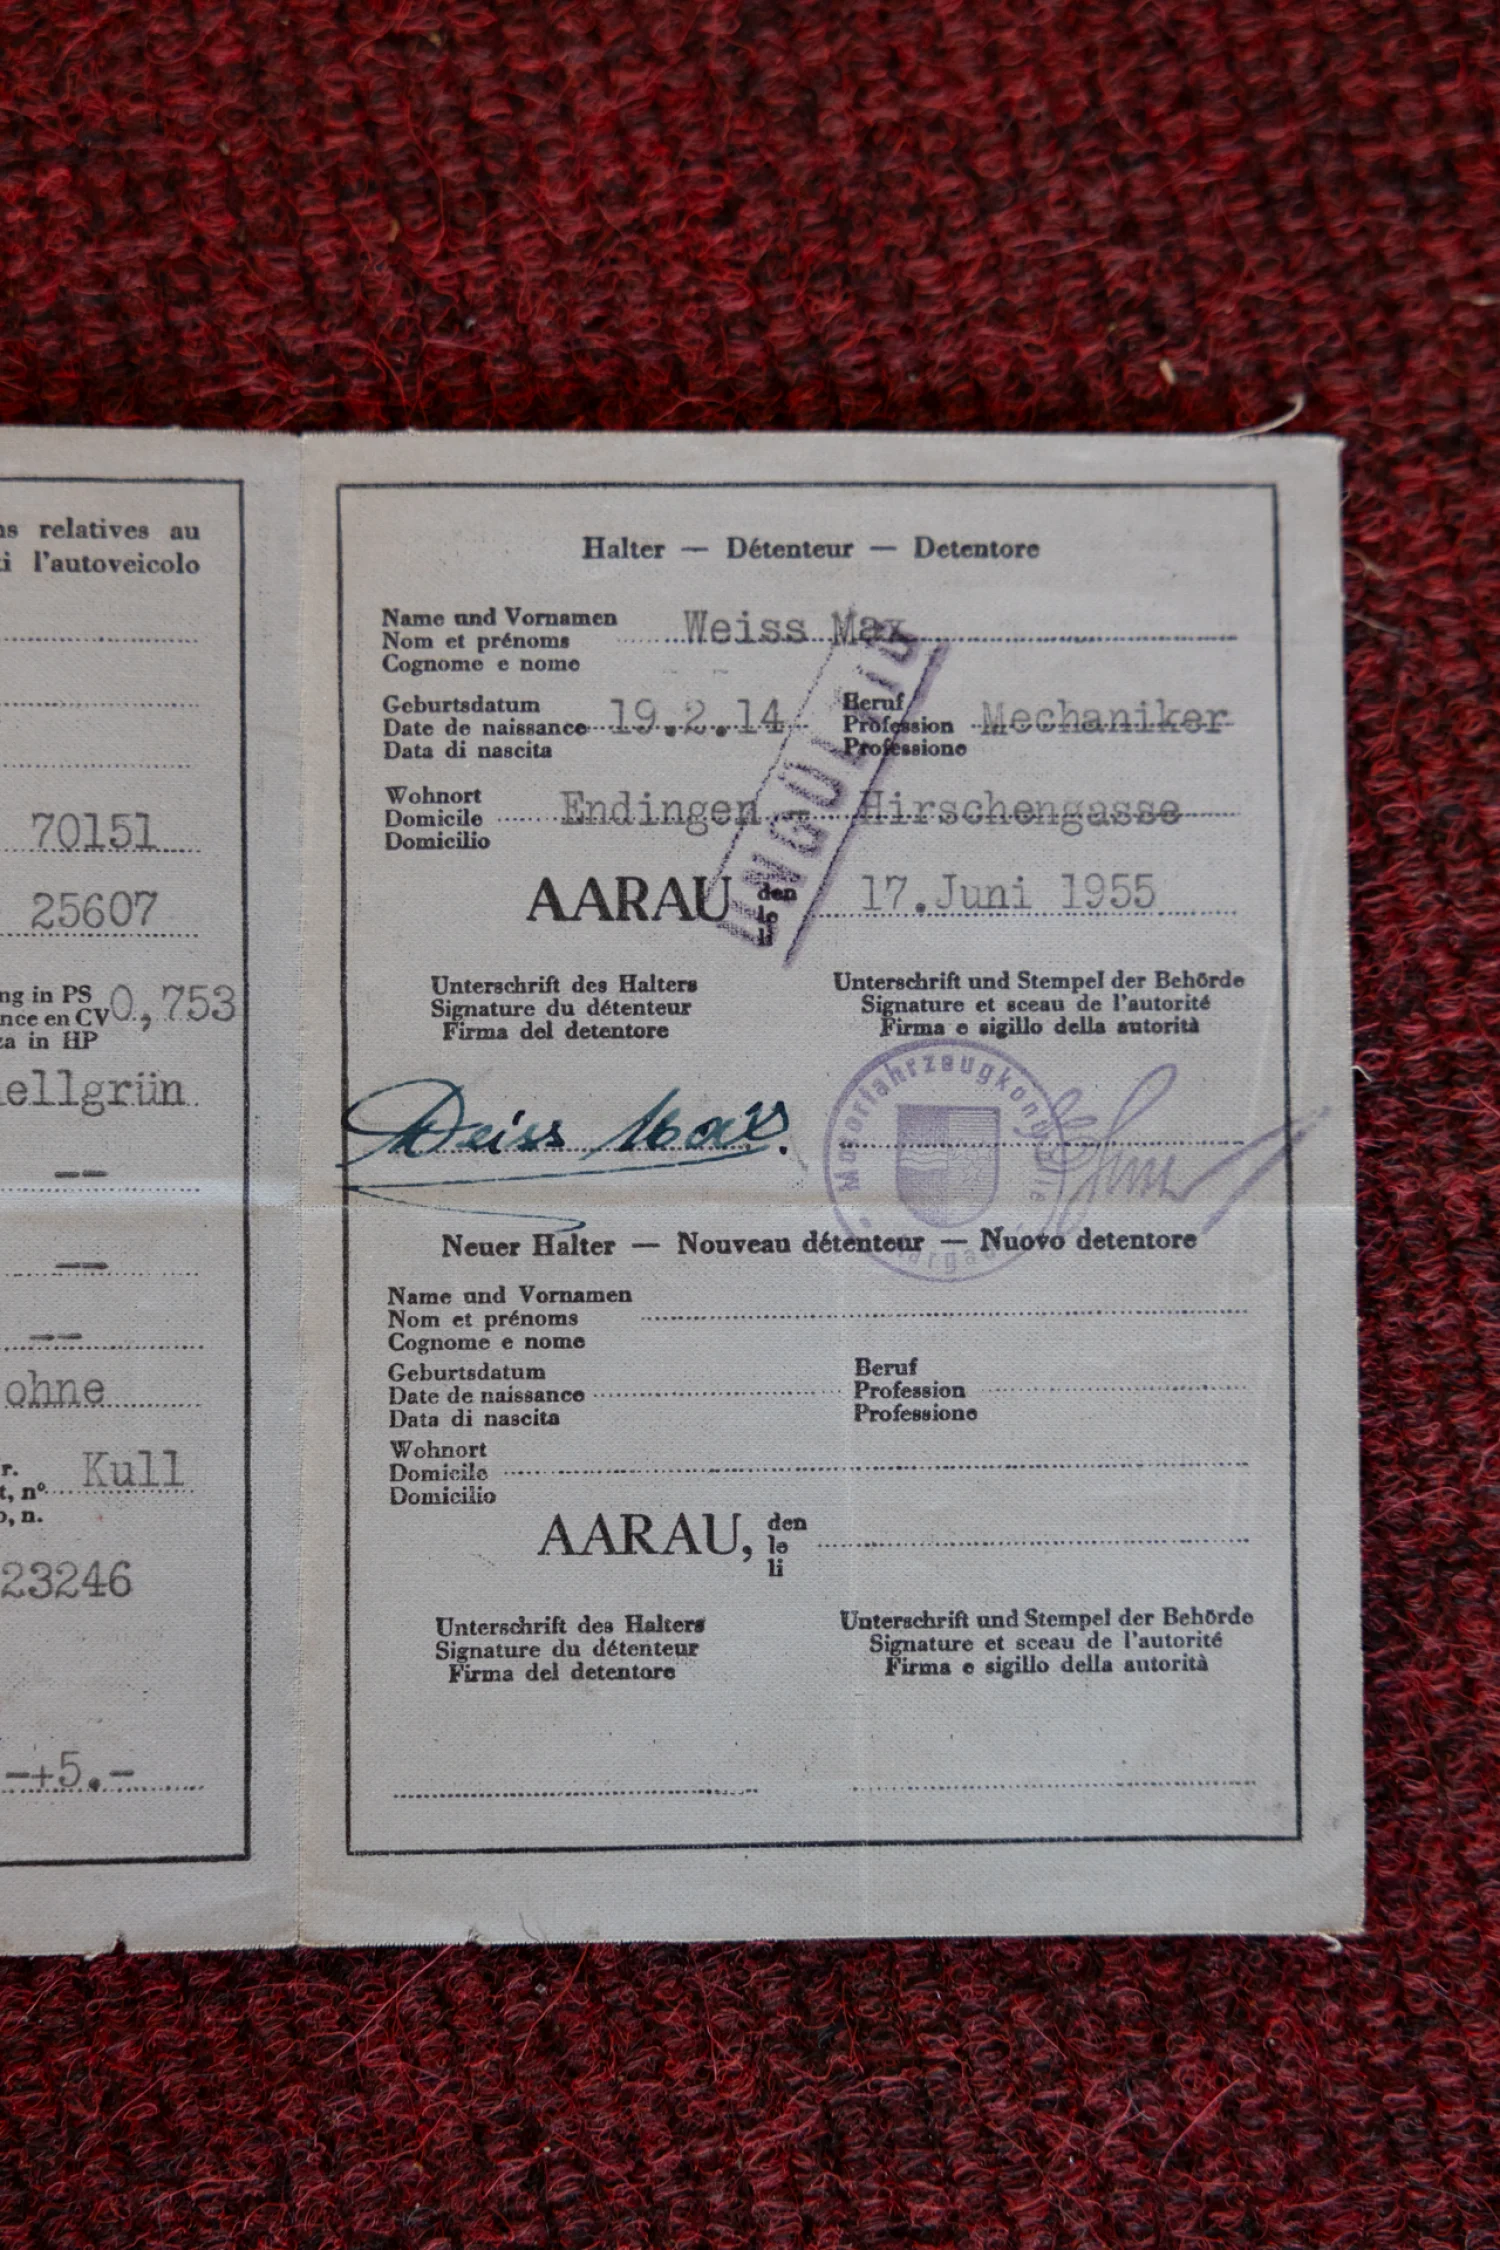 ns relatives au
ti l'autoveicolo
70151
25607
ng in PS
nce en CV 0,753
za in HP
ellgrün
--
--
--
ohne
r.
t, nº Kull
o, n.
23246
-+5.-
Halter — Détenteur — Detentore
Name und Vornamen
Nom et prénoms Weiss Max
Cognome e nome
Geburtsdatum Beruf
Date de naissance 19.2.14 Profession Mechaniker
Data di nascita Professione
Wohnort
Domicile Endingen - Hirschengasse
Domicilio
UNGÜLTIG
AARAU den 17.Juni 1955
le
li
Unterschrift des Halters Unterschrift und Stempel der Behörde
Signature du détenteur Signature et sceau de l'autorité
Firma del detentore Firma e sigillo della autorità
Weiss Max.
Motorfahrzeugkontrolle
Aargau
Neuer Halter — Nouveau détenteur — Nuovo detentore
Name und Vornamen
Nom et prénoms
Cognome e nome
Geburtsdatum Beruf
Date de naissance Profession
Data di nascita Professione
Wohnort
Domicile
Domicilio
AARAU, den
le
li
Unterschrift des Halters Unterschrift und Stempel der Behörde
Signature du détenteur Signature et sceau de l'autorité
Firma del detentore Firma e sigillo della autorità